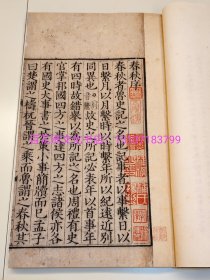 春秋序
春秋者魯史記之名也記事者以事繫日以
日繫月以月繫時以時繫年所以紀遠近別
同異也故史之所記必表年以首事年
有四時故錯舉以為所記之名也周禮有史
官掌邦國四方之事達四方之志諸侯亦各
有國史大事書之於策小事簡牘而已孟子
曰楚謂之檮杌晉謂之乘而魯謂之春秋其